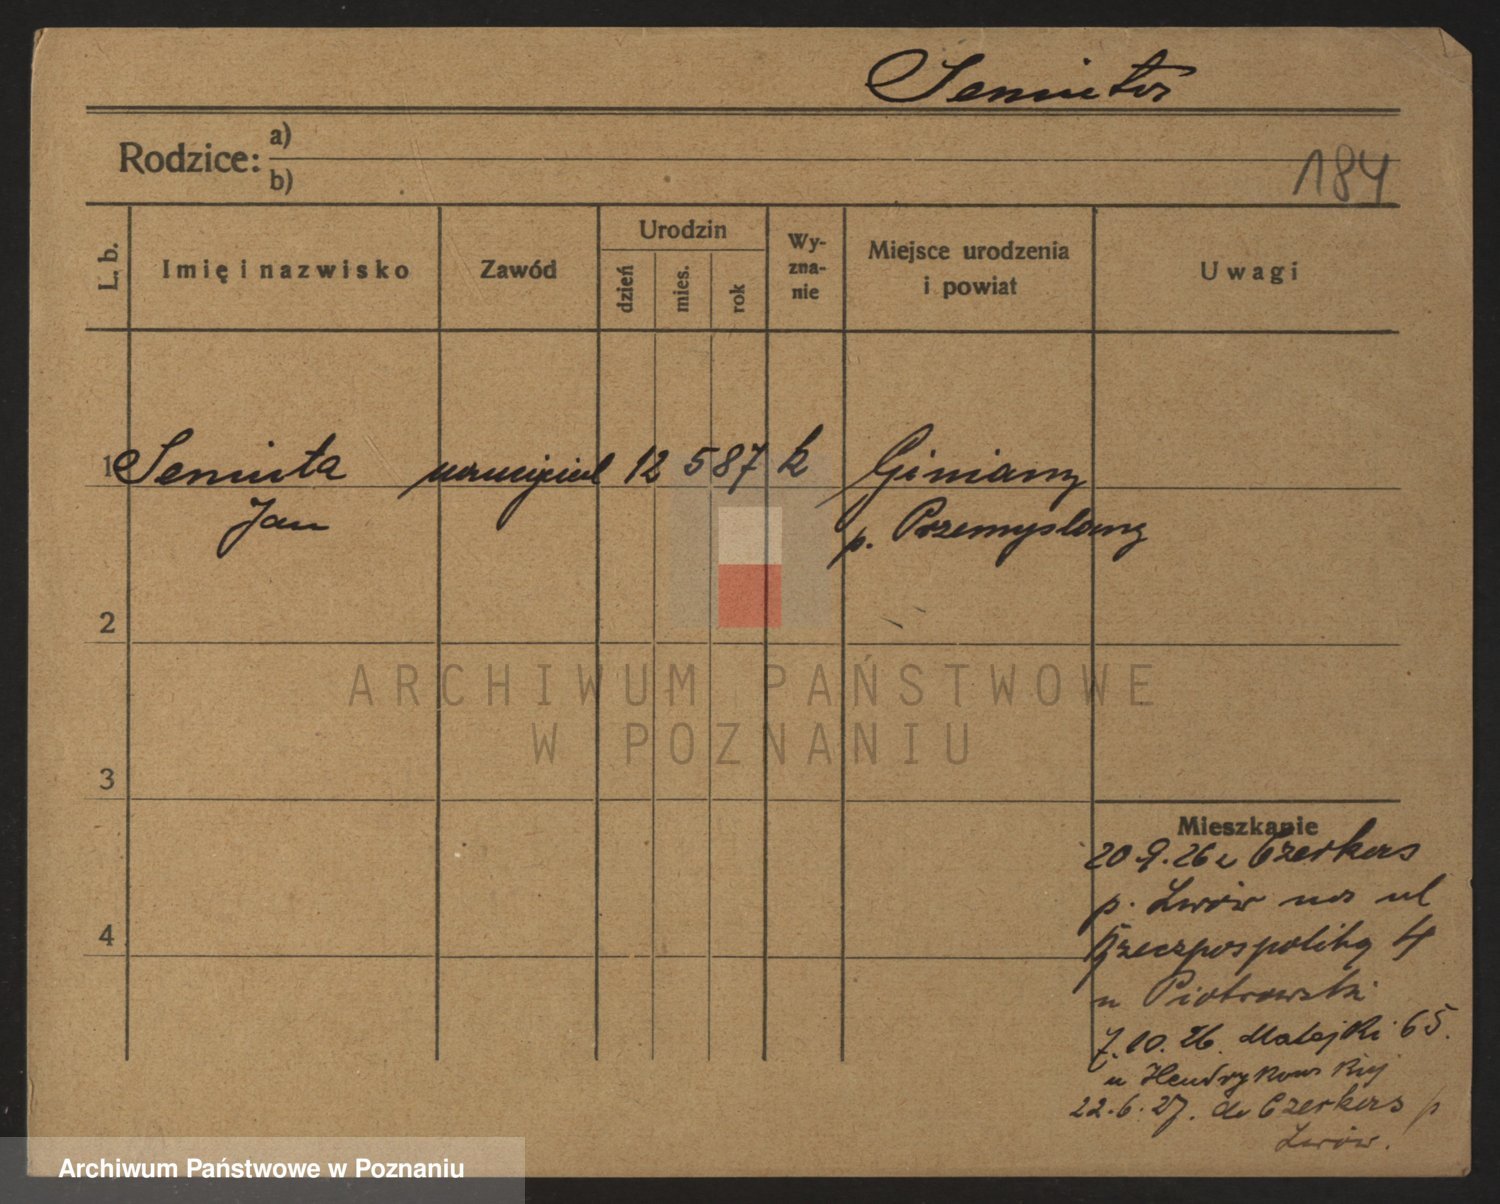 Semiuta
Rodzice: a)
b)
184
L. b.
Imię i nazwisko
Zawód
Urodzin
dzień
mies.
rok
Wy-
zna-
nie
Miejsce urodzenia
i powiat
Uwagi
1 Semiuta nauczyciel 12 5 87 k Giniany
Jan p. Przemyslany
2
3
4
Mieszkanie
20.9.26 z Czerkas
p. Lwów na ul
Rzeczpospolitą 4
u Piotrowski
7.10.26. Matejki 65.
u Hendrykowskiej
22.6.27. do Czerkas p
Lwów.
ARCHIWUM PAŃSTWOWE
W POZNANIU
Archiwum Państwowe w Poznaniu